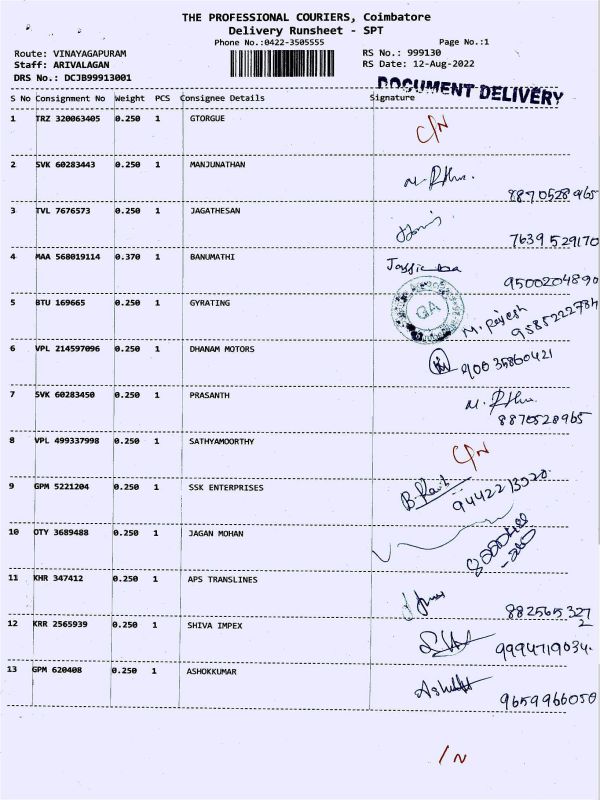 THE PROFESSIONAL COURIERS, Coimbatore
Delivery Runsheet - SPT
Phone No.:0422-3505555 Page No.:1
Route: VINAYAGAPURAM RS No.: 999130
Staff: ARIVALAGAN RS Date: 12-Aug-2022
DRS No.: DCJB99913001
DOCUMENT DELIVERY
S No Consignment No Weight PCS Consignee Details Signature
1 TRZ 320063405 0.250 1 GTORGUE C/N
2 SVK 60283443 0.250 1 MANJUNATHAN
8870528965
3 TVL 7676573 0.250 1 JAGATHESAN
7639529170
4 MAA 568019114 0.370 1 BANUMATHI
9500204890
5 BTU 169665 0.250 1 GYRATING QA M. Rajesh
9585222784
6 VPL 214597096 0.250 1 DHANAM MOTORS
7 SVK 60283450 0.250 1 PRASANTH
8870528965
8 VPL 499337998 0.250 1 SATHYAMOORTHY C/N
9 GPM 5221204 0.250 1 SSK ENTERPRISES
9442213020
10 OTY 3689488 0.250 1 JAGAN MOHAN
11 KHR 347412 0.250 1 APS TRANSLINES
882565327
2
12 KRR 2565939 0.250 1 SHIVA IMPEX
9994719034
13 GPM 620408 0.250 1 ASHOKKUMAR
9659966050
/N